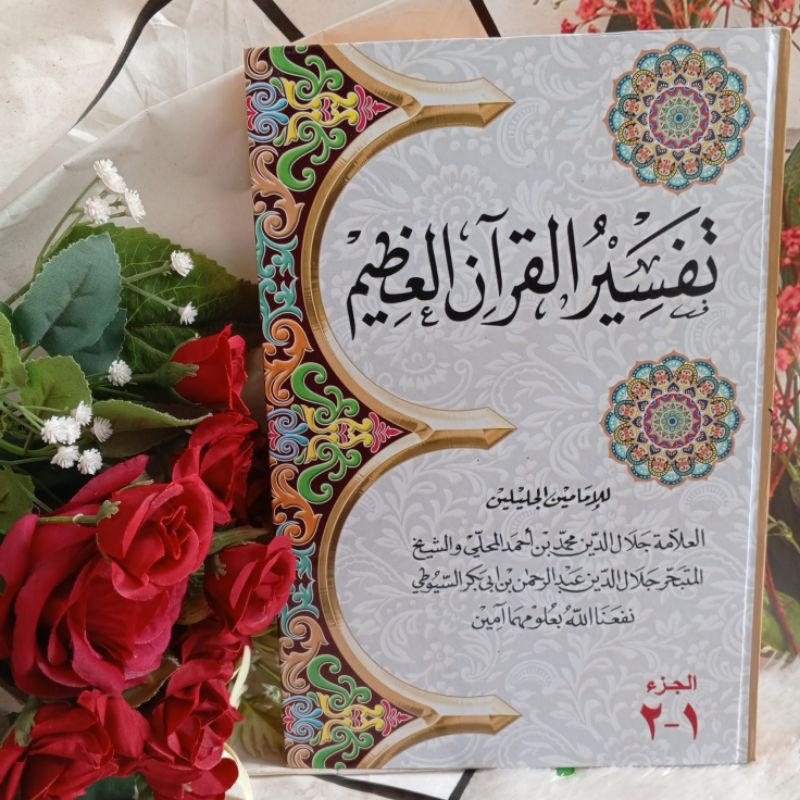 تفسير القرآن العظيم
للإمامين الجليلين
العلامة جلال الدين محمد بن أحمد المحلي والشيخ
المتبحر جلال الدين عبد الرحمن بن ابي بكر السيوطي
نفعنا الله بعلومهما آمين
الجزء
١-٢